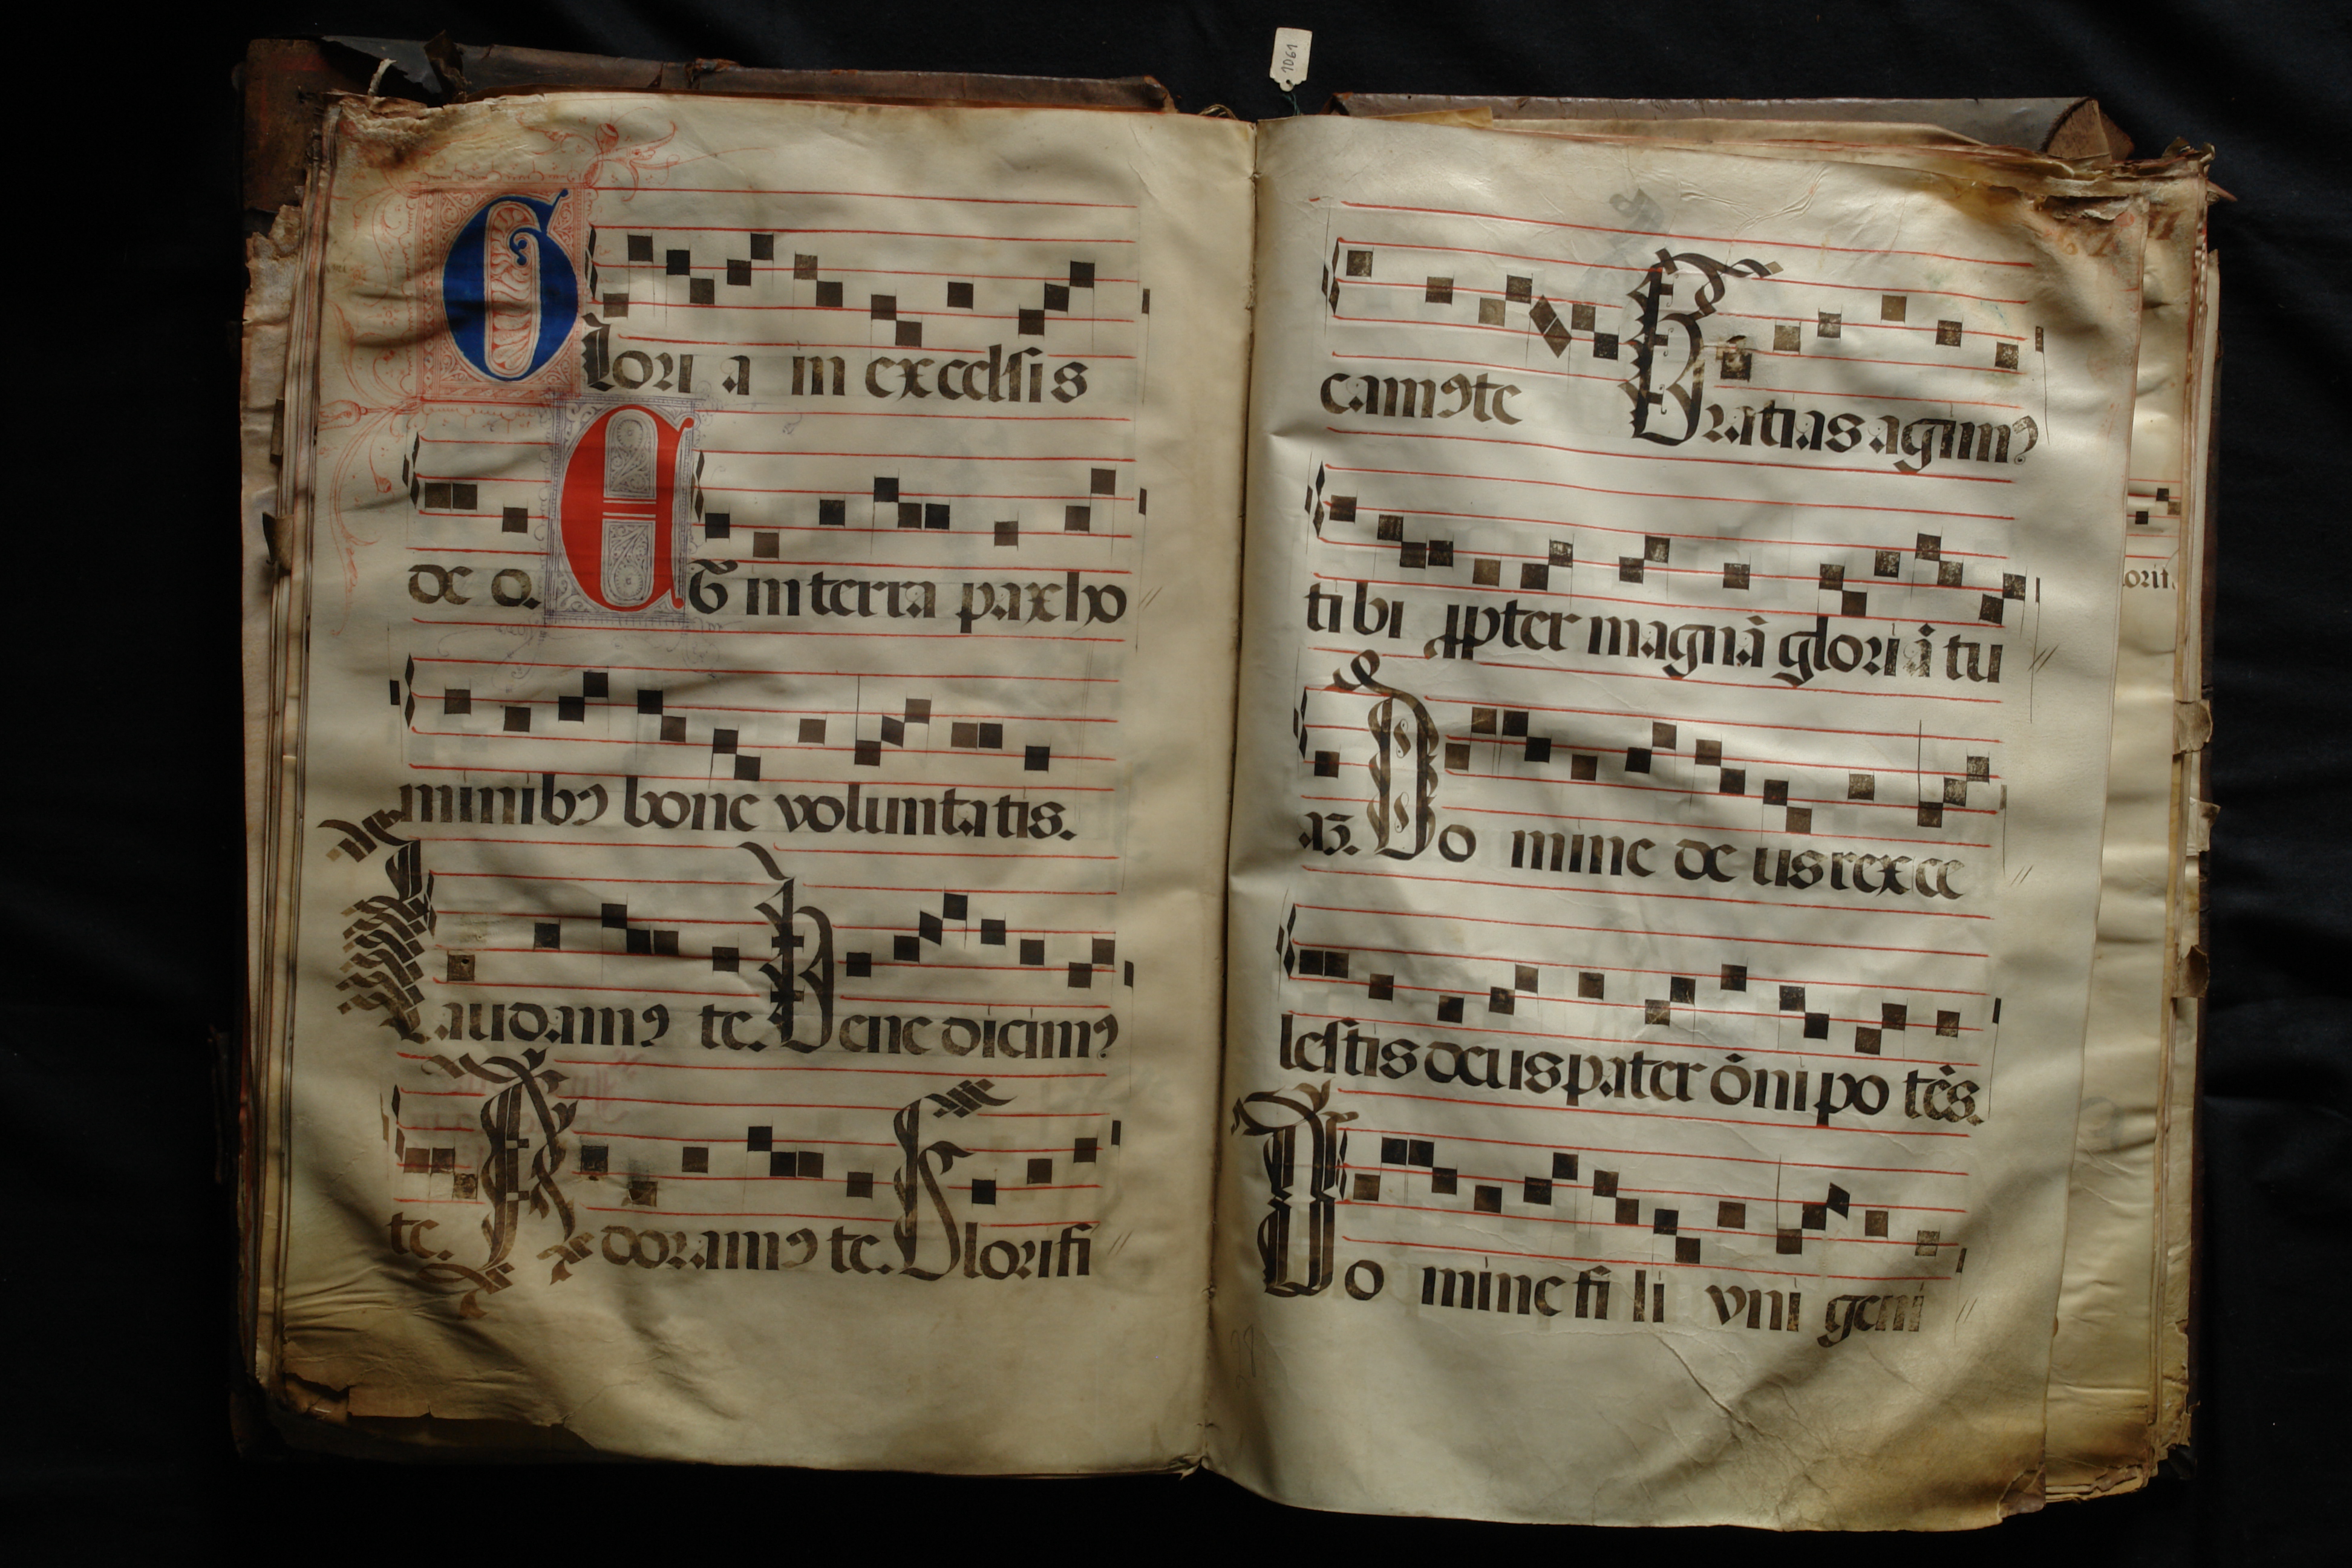 1061
Glori a in excelsis
de o. Et in terra pax ho
minibꝯ bone voluntatis.
Laudamꝯ te. Benedicimꝯ
te. Adoramꝯ te. Glorifi
camꝯ te Gratias agimꝯ
tibi ꝓpter magnā gloriā tu
aʒ. Do mine de us rex ce
lestis deus pater ōnipo tēs.
Do mine fi li vni geni
28